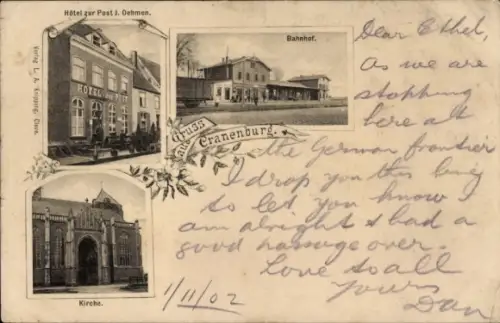 Hôtel zur Post J. Oehmen.
Bahnhof.
Verlag L. A. Knipping, Cleve.
HOTEL
Gruss
aus
Cranenburg.
Kirche.
Dear Ethel,
As we are
stopping
here at
the German frontier
I drop you this line
to let you know I
am alright & had a
good passage over.
Love to all
yours
Dan
1/11/02